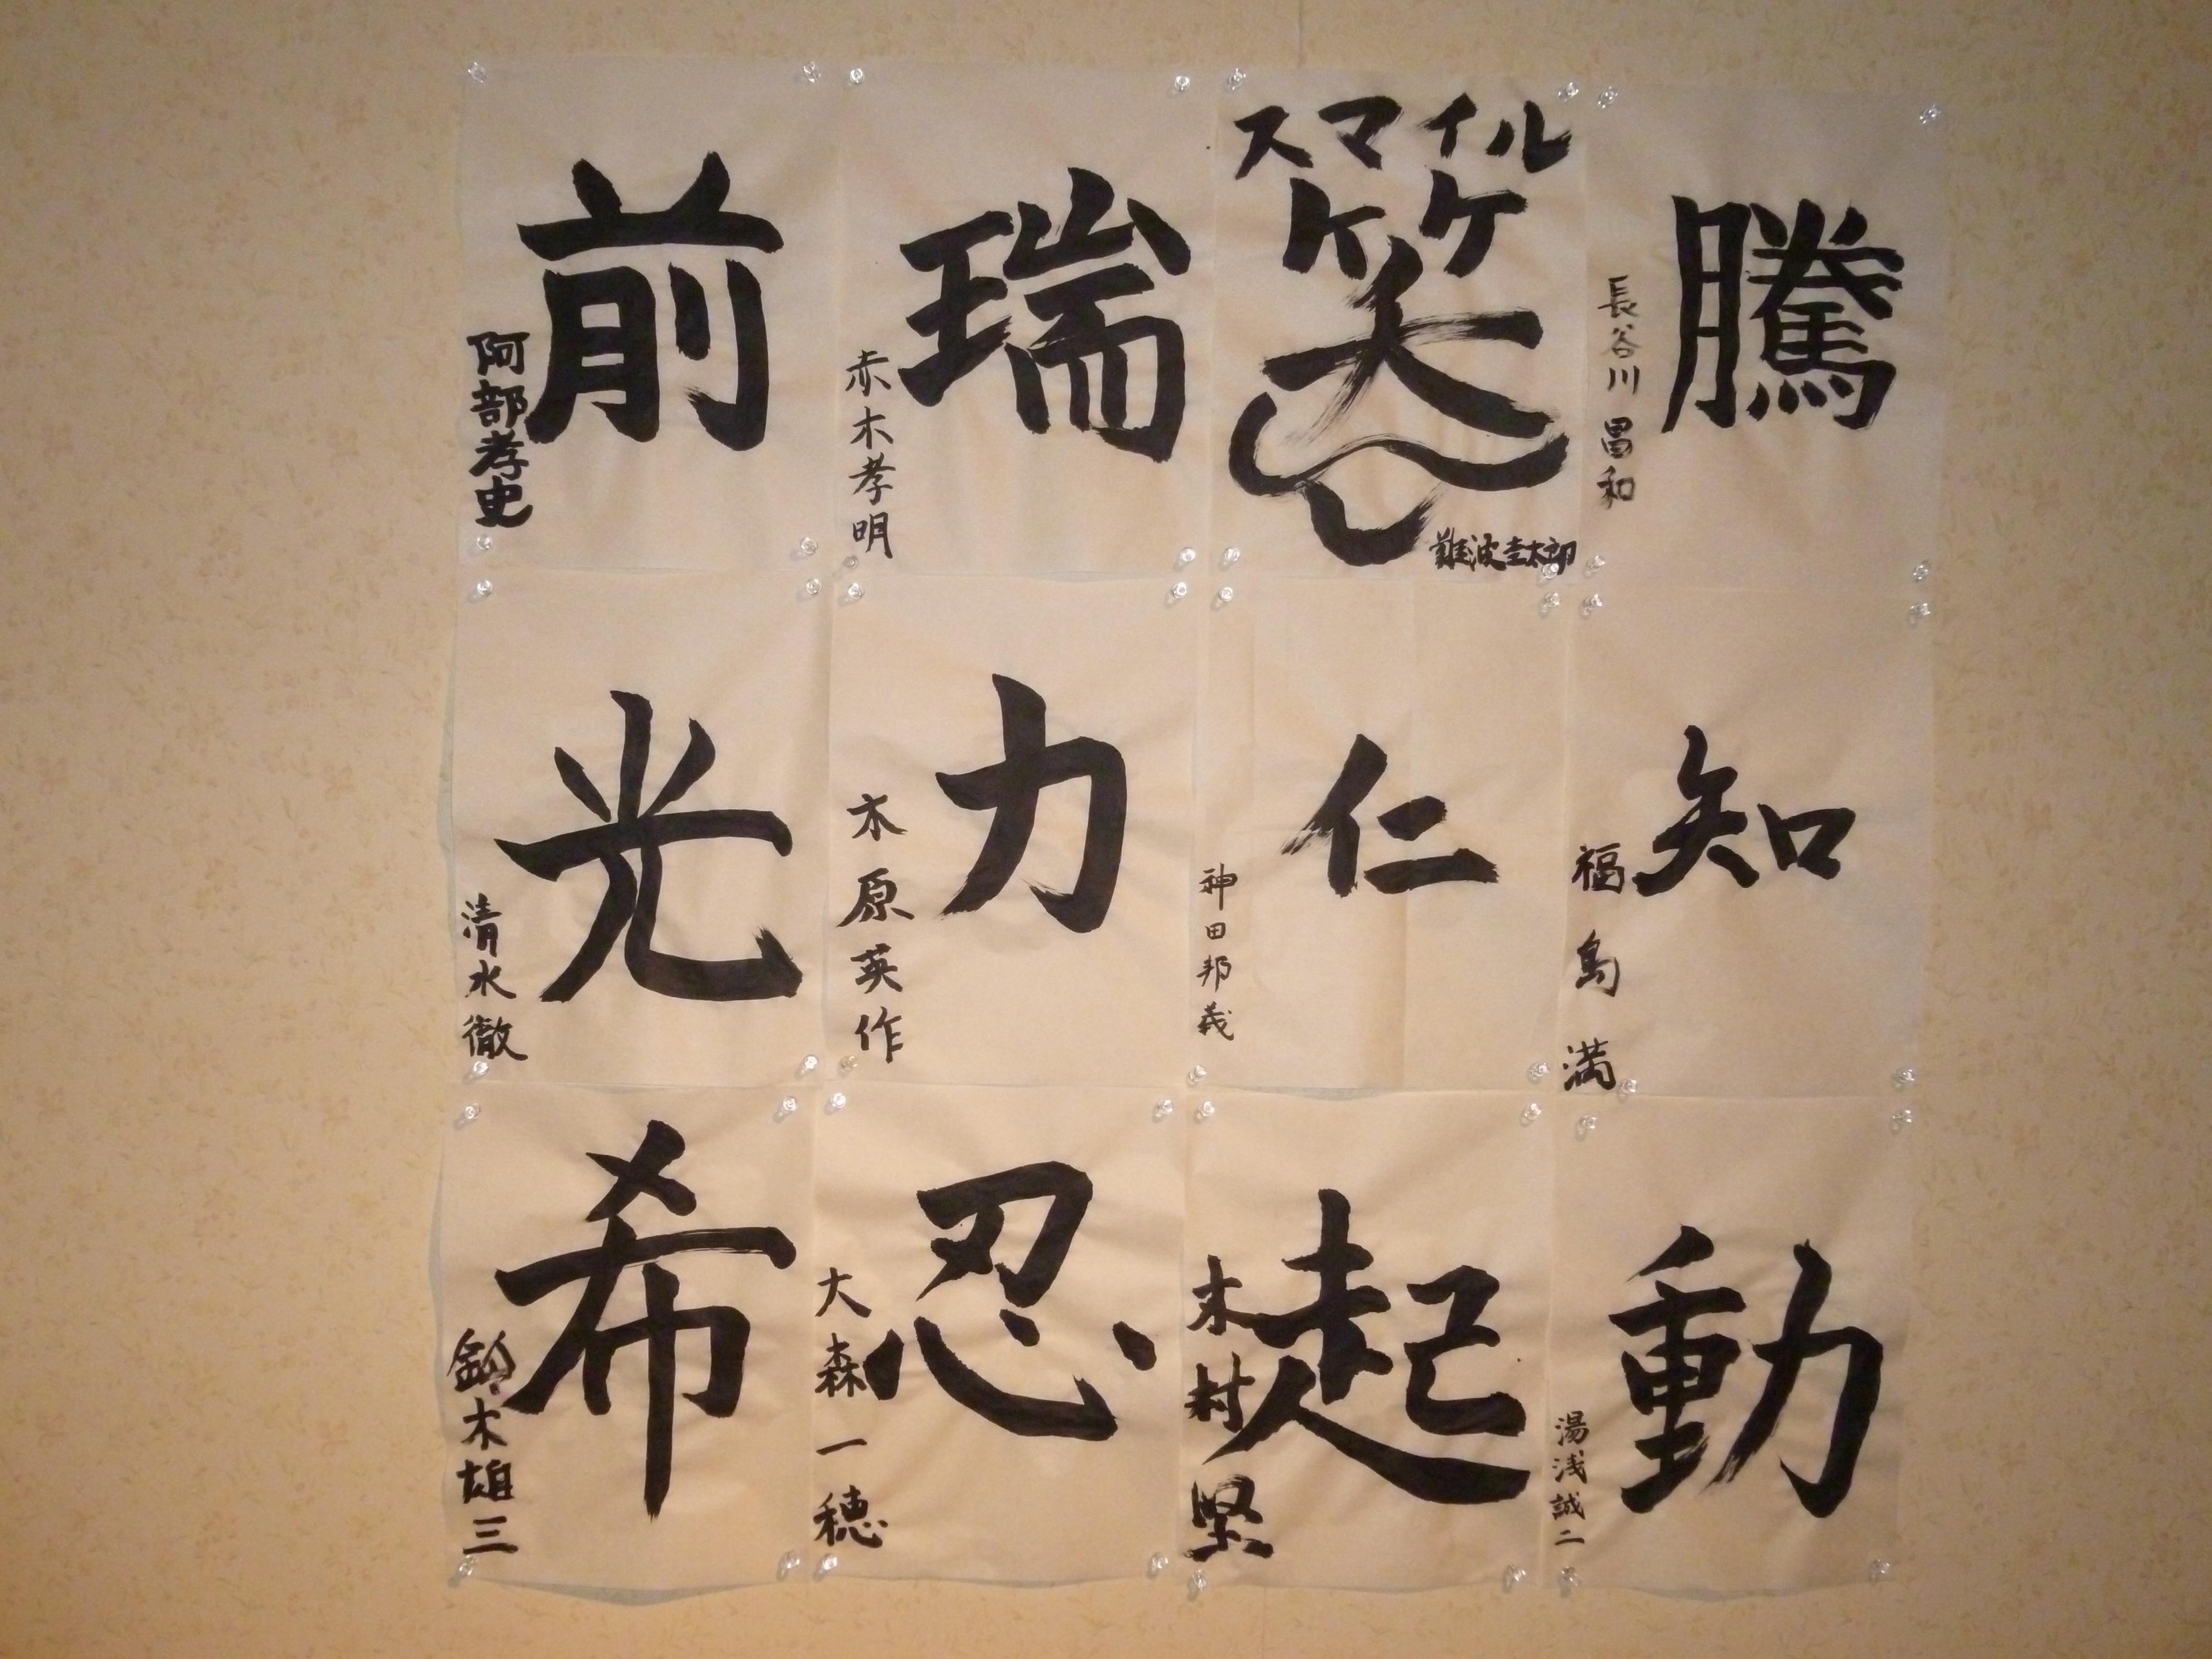 前
阿部孝史
瑞
赤木孝明
スマイル
笑
難波圭太郎
騰
長谷川昌和
光
清水徹
力
木原英作
仁
神田邦義
知
福島満
希
鈴木雄三
忍
大森一穂
起
木村堅
動
湯浅誠二